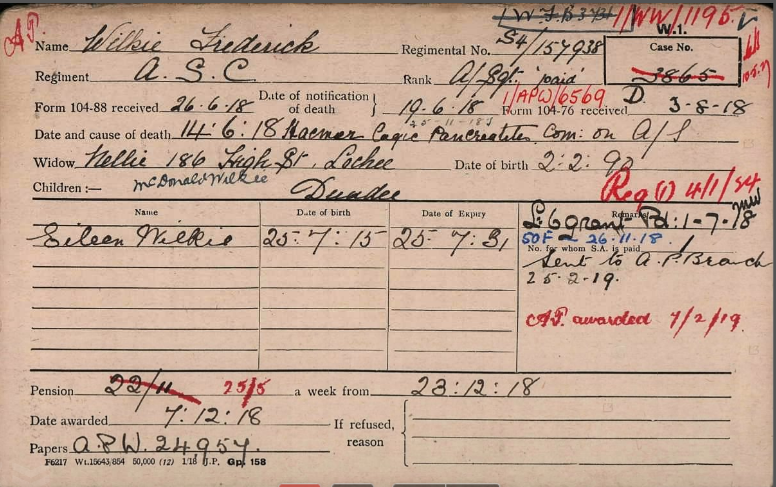 1/WW/1195
A.P.
W.1.
Name Wilkie Frederick Regimental No. S4/157938
Case No.
3865
Regiment A.S.C Rank A/Sgt. 'paid'
1/APW/6569 D.
Form 104-88 received 26.6.18 Date of notification of death } 19.6.18 Form 104-76 received 3-8-18
25-11-18
Date and cause of death 14.6.18 Haemor Cagic Pancreatites Com: on A/S
Widow Nellie 186 High St, Lochee Date of birth 2:2:90
Children :— McDonald Wilkie Dundee Reg (1) 4/1/54
Name Date of birth Date of Expiry Remarks
£6 grant Pd: 1-7-18
Eileen Wilkie 25.7:15 25.7:31
50F 26.11.18.
No. for whom S.A. is paid
Sent to A.P. Branch
25.2.19.
A.P. awarded 7/2/19.
Pension 22/11 25/5 a week from 23:12:18
Date awarded 7:12:18 If refused, reason
Papers A.P.W. 24957.
F6217 Wt.15643/854 50,000 (12) 1/18 J.P. Gp. 158